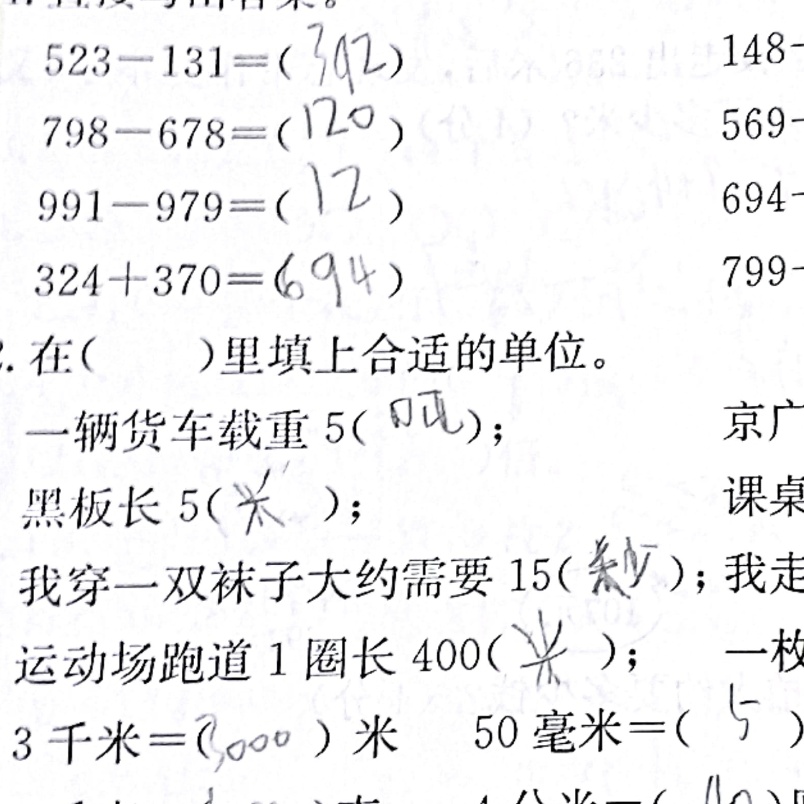 523-131=(392) 148-
798-678=(120) 569-
991-979=(12) 694-
324+370=(694) 799-
.在( )里填上合适的单位。
一辆货车载重 5(吨); 京广
黑板长 5(米); 课桌
我穿一双袜子大约需要 15(秒);我走
运动场跑道 1 圈长 400(米); 一枚
3 千米=(3000)米 50 毫米=(5)